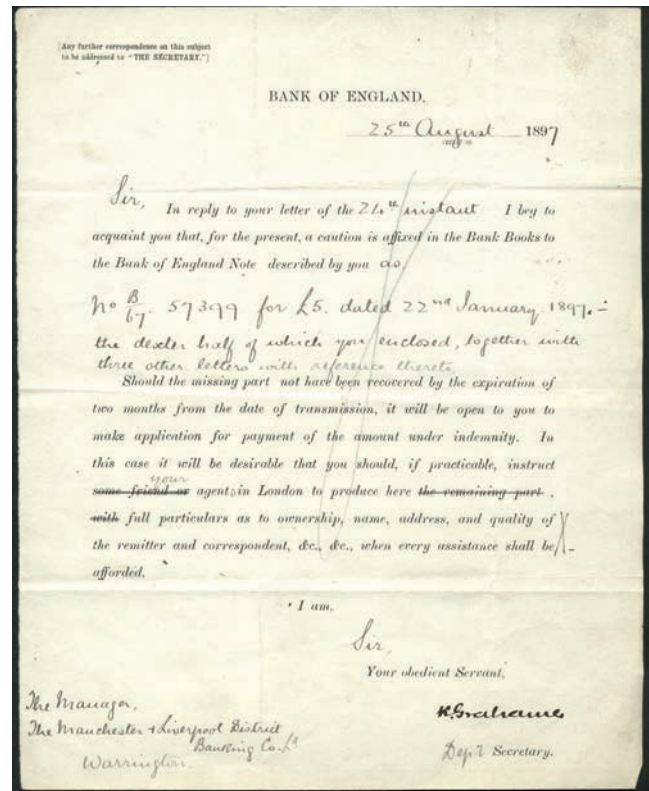 [Any further correspondence on this subject
to be addressed to "THE SECRETARY."]
BANK OF ENGLAND.
25th August 1897
Sir,
In reply to your letter of the 24th instant I beg to
acquaint you that, for the present, a caution is affixed in the Bank Books to
the Bank of England Note described by you as
No B/67. 57399 for £5. dated 22nd January 1897.-
the dexter half of which you enclosed, together with
three other letters with reference thereto.
Should the missing part not have been recovered by the expiration of
two months from the date of transmission, it will be open to you to
make application for payment of the amount under indemnity. In
this case it will be desirable that you should, if practicable, instruct
your
some friend or agents in London to produce here the remaining part.
with full particulars as to ownership, name, address, and quality of
the remitter and correspondent, &c., &c., when every assistance shall be
afforded.
I am,
Sir,
Your obedient Servant,
K Grahame
Depy Secretary.
The Manager,
The Manchester & Liverpool District
Banking Co. Ld
Warrington.